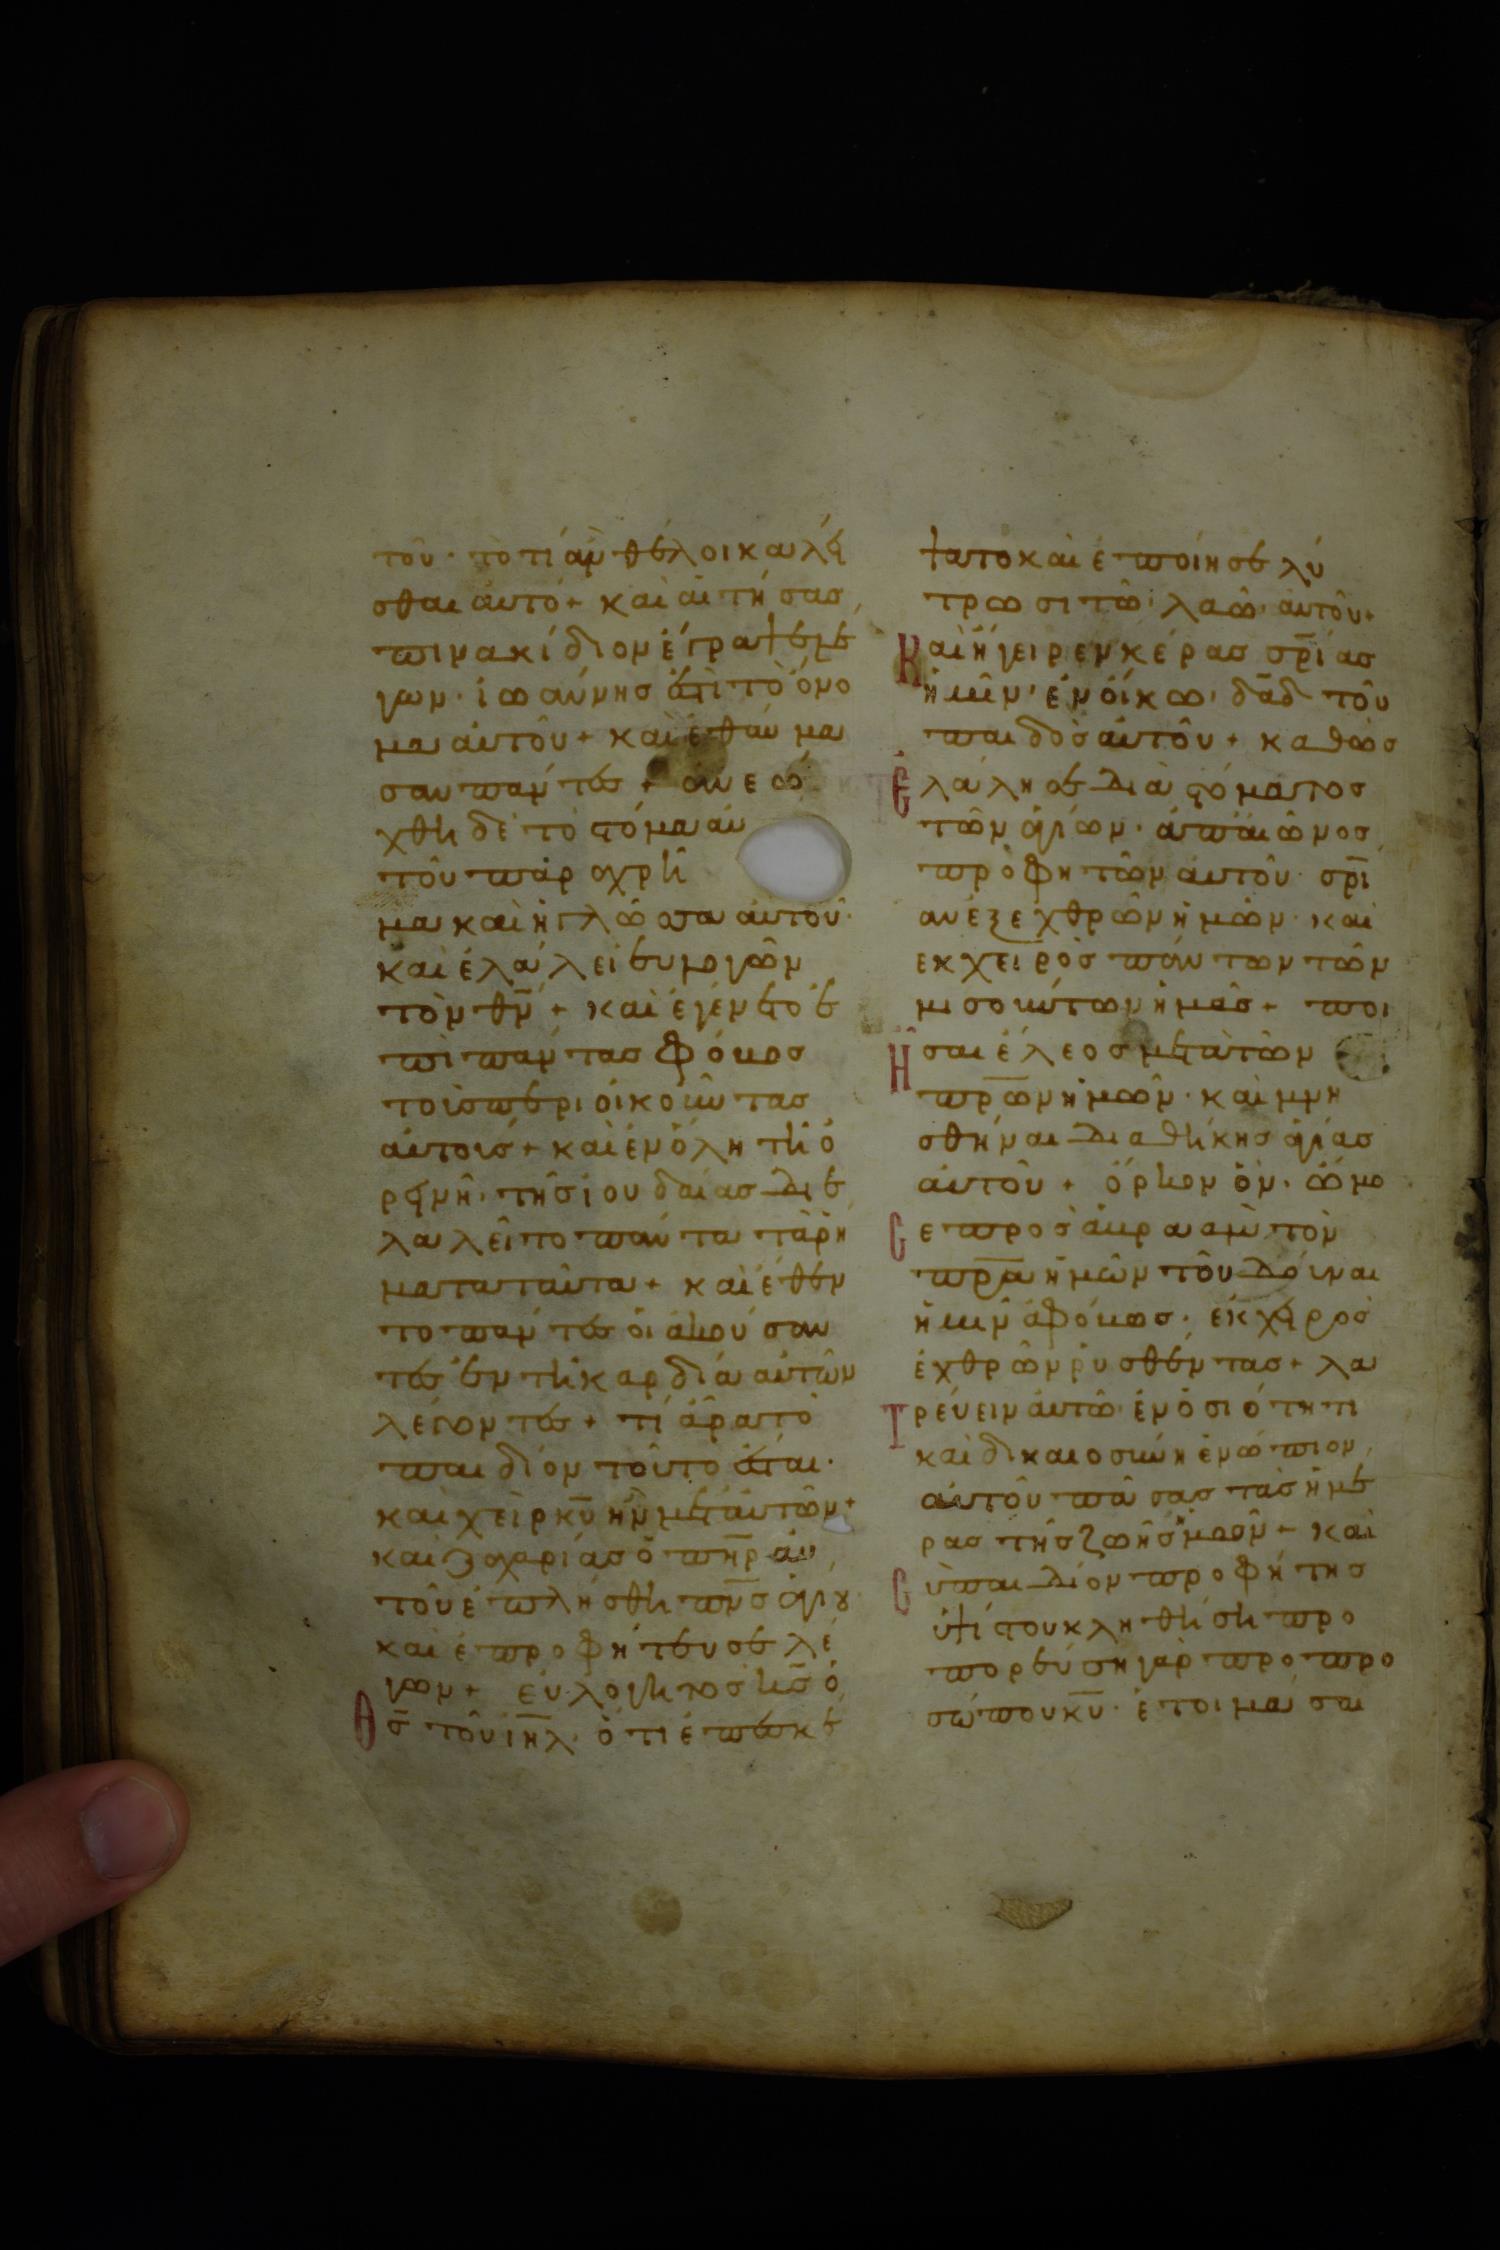 τοῦ· τὸ τί ἂν θέλοι καλεῖ
σθαι αὐτό + καὶ αἰτήσας
πινακίδιον ἔγραψε λε
γων· ἰωάννης ἐστὶ τὸ ὄνο
μα αὐτοῦ + καὶ ἐθαύμα
σαν πάντες + ἀνεώ
χθη δὲ τὸ στόμα αὐ
τοῦ παραχρῆ
μα καὶ ἡ γλῶσσα αὐτοῦ·
καὶ ἐλάλει εὐλογῶν
τὸν θν̄ + καὶ ἐγένετο ἐ
πὶ πάντας φόβος
τοὺς περιοικοῦντας
αὐτοις + καὶ ἐν ὅλη τῆ ὀ
ρεινῆ· τῆς ἰουδαίας διε
λαλεῖτο πάντα τὰ ρή
ματα ταῦτα + καὶ ἔθεν
το πάντες οἱ ἀκούσαν
τες ἐν τῆ καρδία αὐτῶν
λέγοντες + τί ἄρα τὸ
παιδίον τοῦτο ἔσται·
καὶ χεὶρ κῡ ἦν μετ' αὐτῶν +
καὶ ζαχαρίας ὁ πη̄ρ αὐ
τοῦ ἐπλήσθη πν̄ς ἁγίου
καὶ ἐπροφήτευσε λέ
γων + εὐλογητὸς κς̄ ὁ
θς̄ τοῦ ιη̄λ· ὅτι ἐπεσκέ
ψατο καὶ ἐποίησε λύ
τρωσι τῶ λαῶ αὐτοῦ +
Καὶ ἤγειρεν κέρας σρ̄ίας
ἡμῖν· ἐν οἴκω· δᾱδ τοῦ
παιδὸς αὐτοῦ + καθὼς
Ἐλάλησε διὰ στόματος
τῶν ἁγίων· ἀπ' αἰῶνος
προφητῶν αὐτοῦ· σρ̄ί
αν ἐξ ἐχθρῶν ἡμῶν· καὶ
εκ χειρὸς πάντων τῶν
μισούντων ἡμᾶς + ποι
Ησαι ἔλεος μετὰ τῶν
πρ̄ων ἡμῶν· καὶ μνη
σθῆναι διαθήκης ἁγίας
αὐτοῦ + ὅρκον ὃν· ὤμο
Cε προς ἀβρααμ τὸν
πρ̄α ἡμῶν τοῦ δοῦναι
ἡμῖν ἀφόβως· ἐκ χειρὸς
ἐχθρῶν ρυσθέντας + λα
Τρέυειν αὐτῶ· ἐν ὁσιότητι
καὶ δικαιοσύνη ἐνώπιον
αὐτοῦ πάσας τὰς ἡμέ
ρας τῆς ζωῆς ἡμῶν + καὶ
Cὺ παιδίον προφήτης
ὑψίστου κληθήση προ
πορεύση γὰρ πρὸ προ
σώπου κῡ· ἑτοιμάσαι